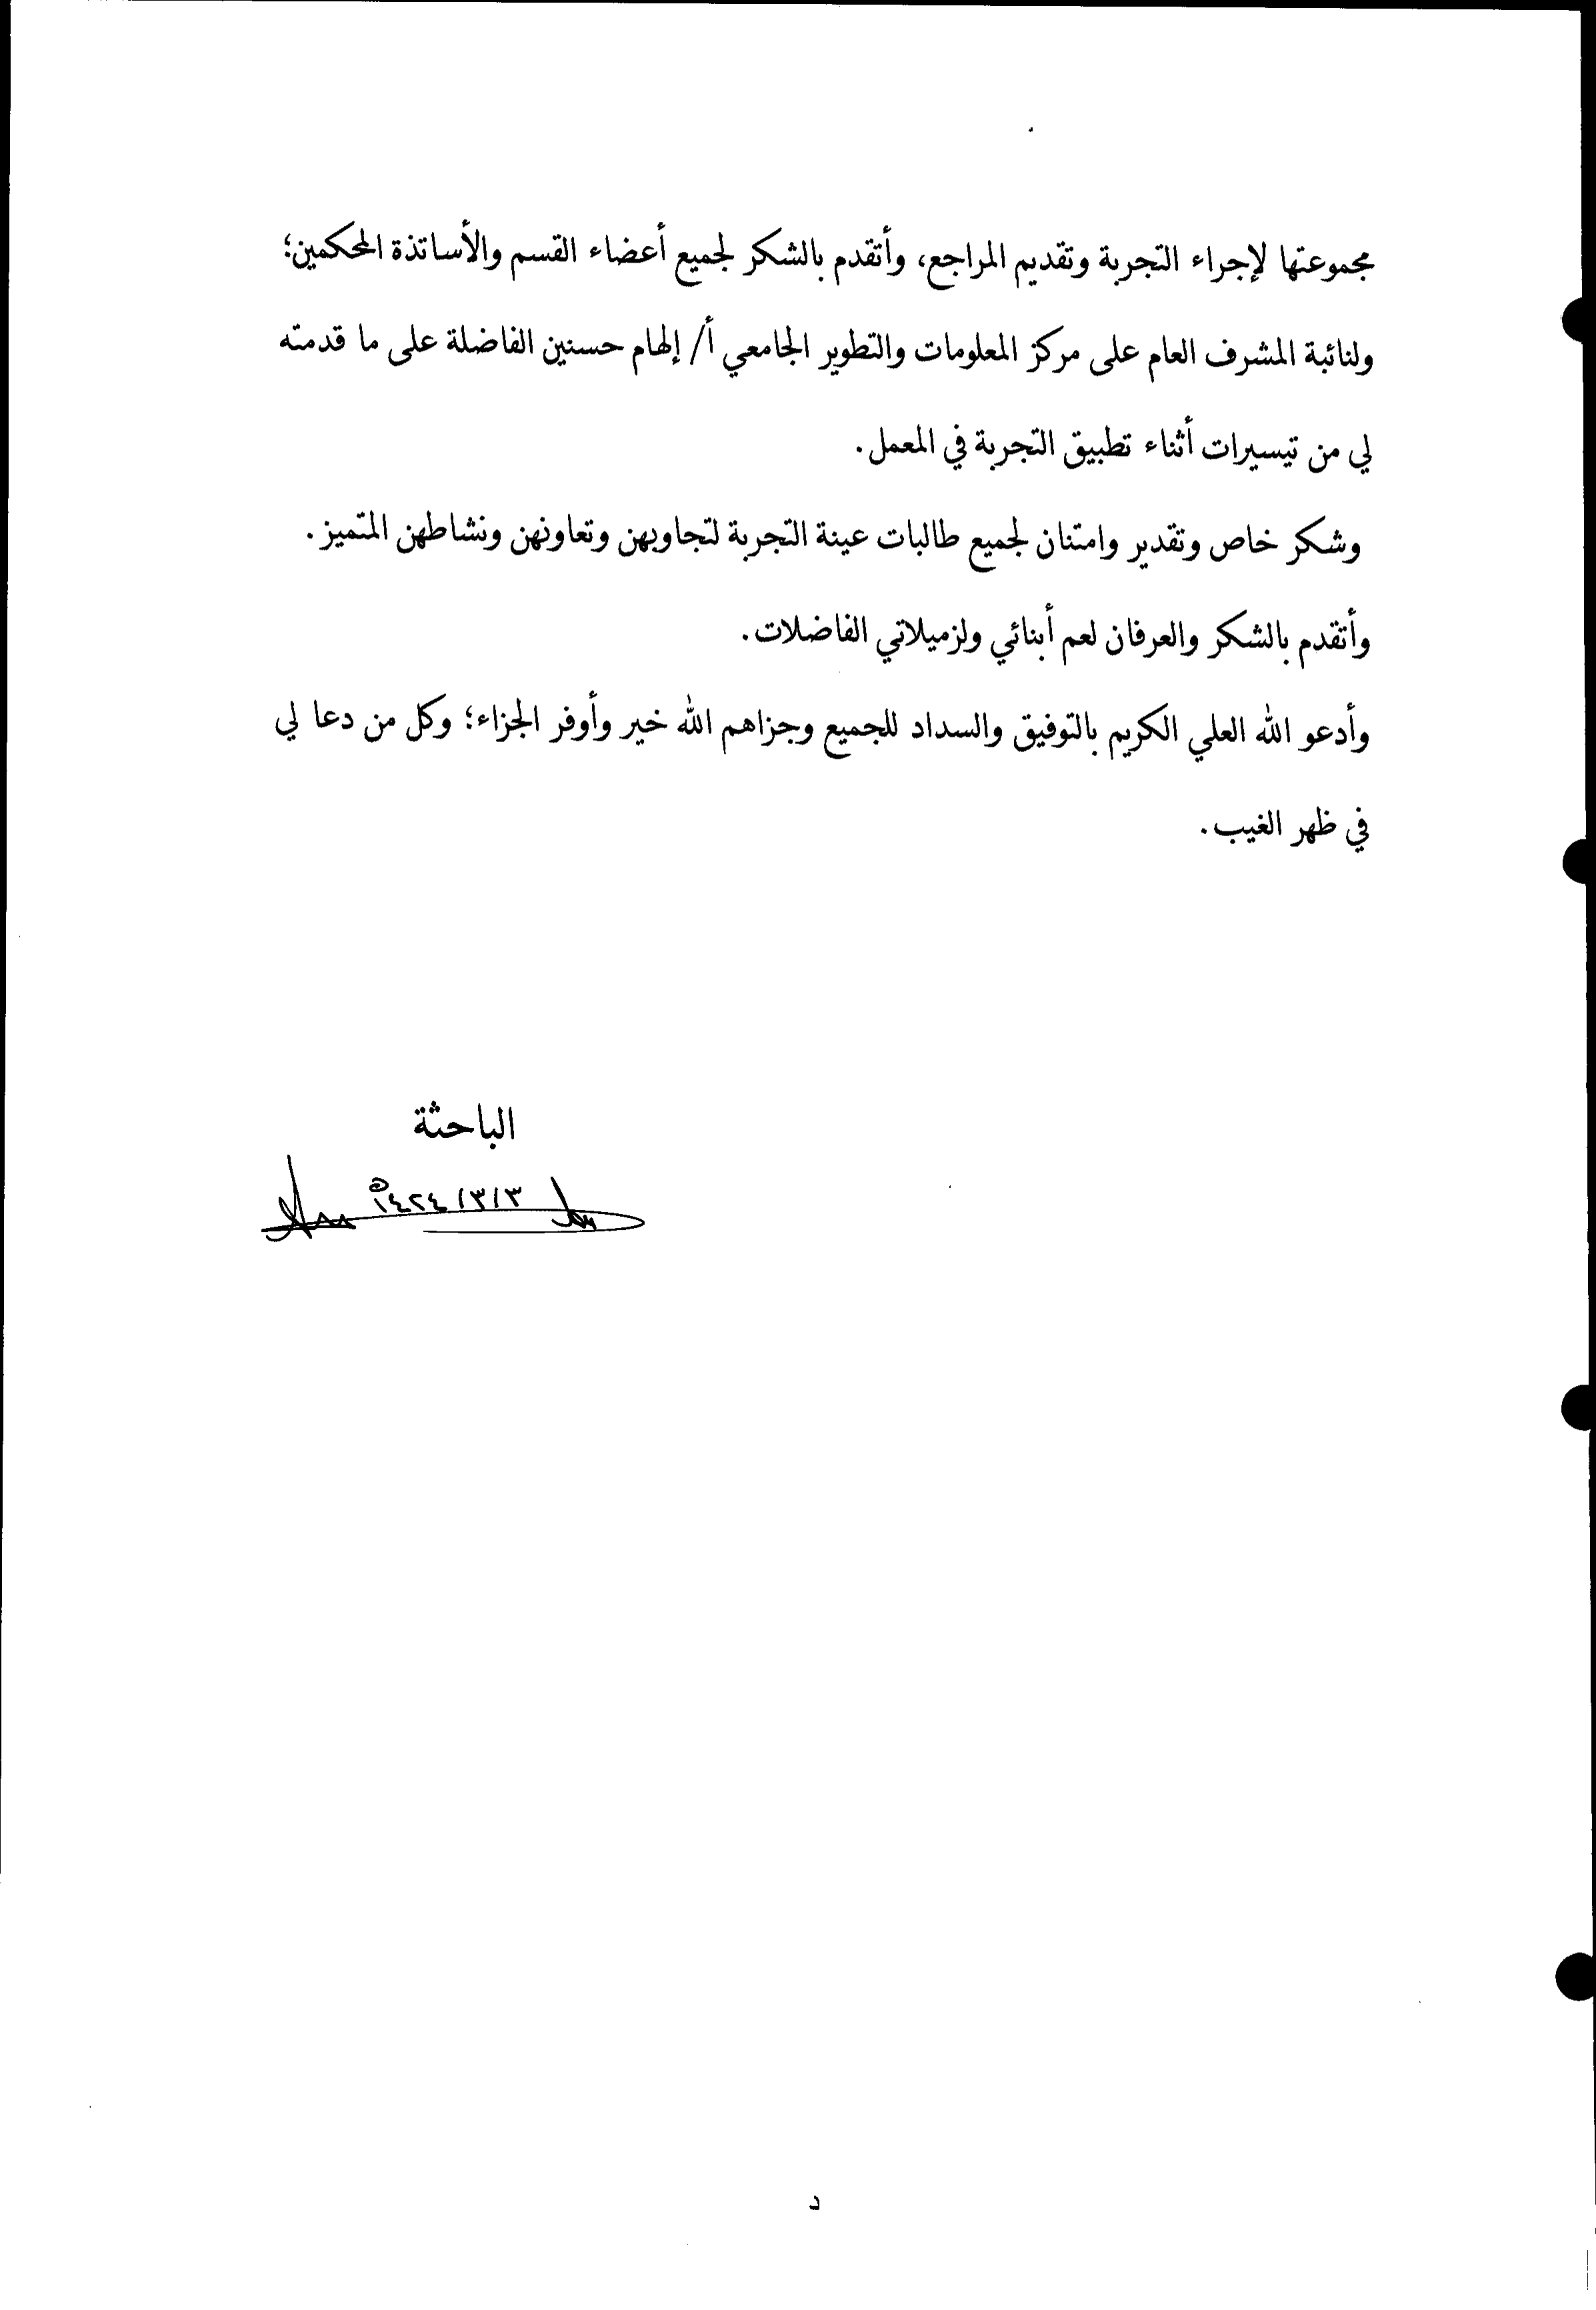 مجموعتها لإجراء التجربة وتقديم المراجع، وأتقدم بالشكر لجميع أعضاء القسم والأساتذة المحكمين؛
ولنائبة المشرف العام على مركز المعلومات والتطوير الجامعي أ/ إلهام حسنين الفاضلة على ما قدمته
لي من تيسيرات أثناء تطبيق التجربة في المعمل.
وشكر خاص وتقدير وامتنان لجميع طالبات عينة التجربة لتجاوبهن وتعاونهن ونشاطهن المتميز.
وأتقدم بالشكر والعرفان لعم أبنائي ولزميلاتي الفاضلات.
وأدعو الله العلي الكريم بالتوفيق والسداد للجميع وجزاهم الله خير وأوفر الجزاء؛ وكل من دعا لي
في ظهر الغيب.
الباحثة
٣/٣/١٤٢٤هـ
د